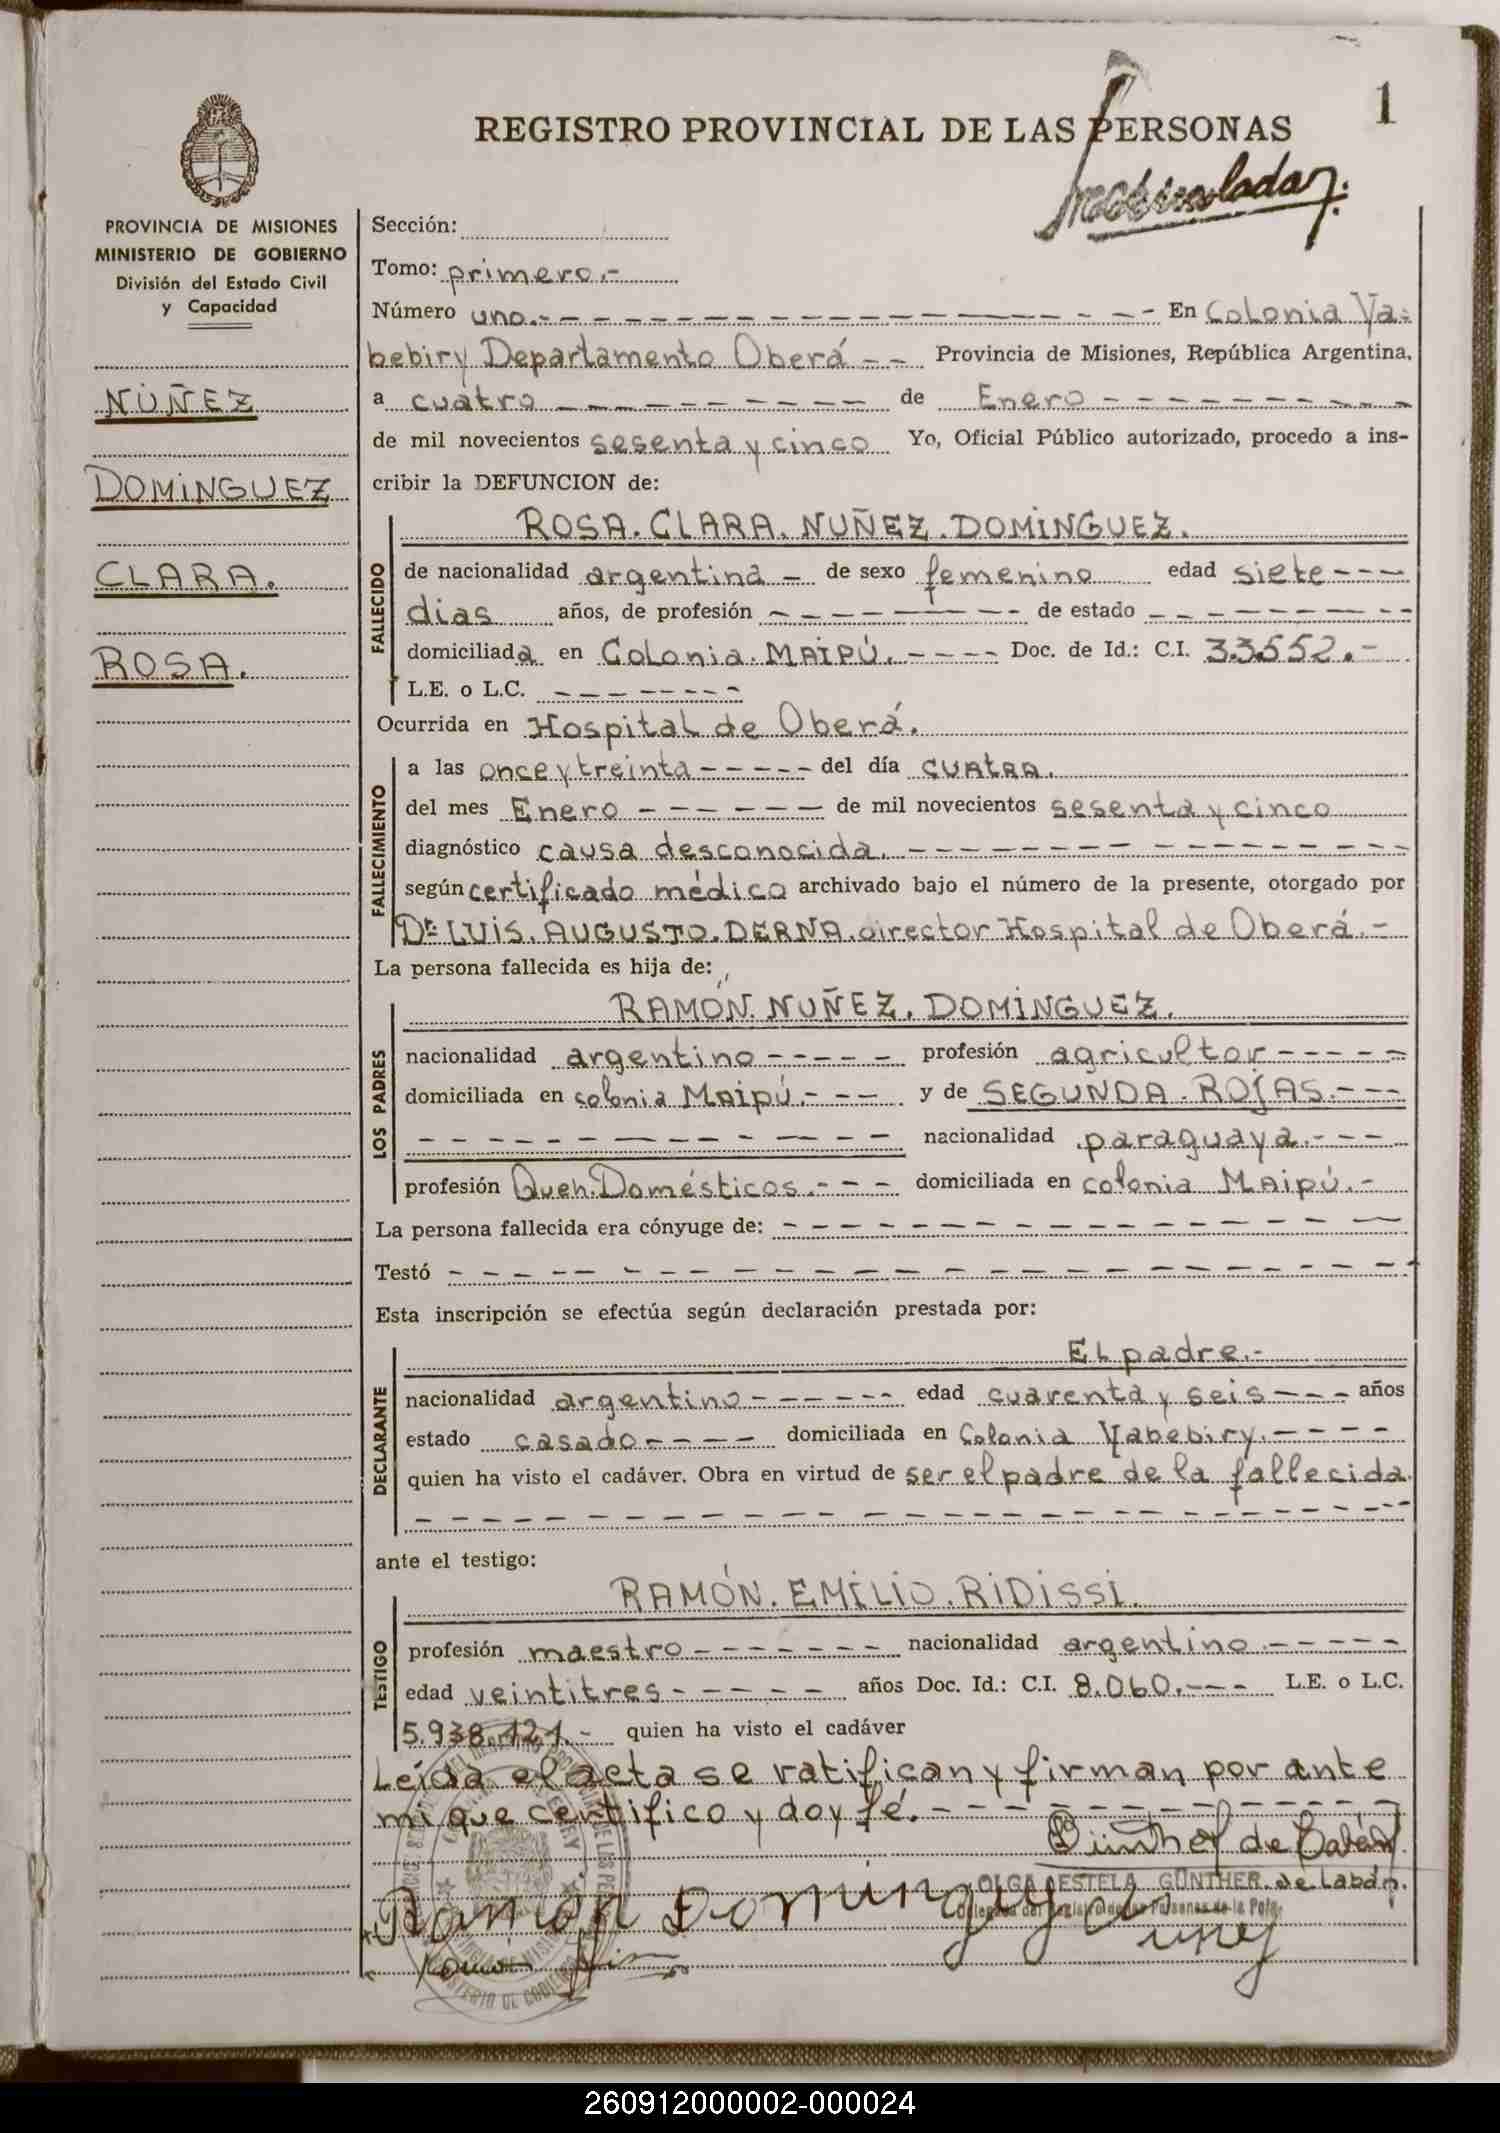 1
REGISTRO PROVINCIAL DE LAS PERSONAS
PROVINCIA DE MISIONES
MINISTERIO DE GOBIERNO
División del Estado Civil
y Capacidad
NÚÑEZ
DOMINGUEZ
CLARA.
ROSA.
Sección:
Tomo: primero.-
Número uno.- - - - - - - - - - - - - - - - - En Colonia Ya-
bebiry Departamento Oberá - - Provincia de Misiones, República Argentina,
a cuatro - - - - - - - - - - de Enero - - - - - - - - - -
de mil novecientos sesenta y cinco Yo, Oficial Público autorizado, procedo a ins-
cribir la DEFUNCION de:
FALLECIDO
ROSA. CLARA. NUÑEZ. DOMINGUEZ.
de nacionalidad argentina - de sexo femenino edad siete - - -
dias años, de profesión - - - - - - - - de estado - - - - - - - -
domiciliada en Colonia. MAIPÚ. - - - - Doc. de Id.: C.I. 33.552.-
L.E. o L.C. - - - - - - -
Ocurrida en Hospital de Oberá.
FALLECIMIENTO
a las once y treinta - - - - - del día cuatro.
del mes Enero - - - - - - de mil novecientos sesenta y cinco
diagnóstico causa desconocida. - - - - - - - - - - - - - - -
según certificado médico archivado bajo el número de la presente, otorgado por
Dr. LUIS. AUGUSTO. DERNA. director Hospital de Oberá.-
La persona fallecida es hija de:
LOS PADRES
RAMÓN. NUÑEZ. DOMINGUEZ.
nacionalidad argentino - - - - - profesión agricultor - - - - -
domiciliada en colonia Maipú.- - - y de SEGUNDA. ROJAS.- - -
- - - - - - - - - - - - - nacionalidad paraguaya.- - -
profesión Queh. Domésticos.- - - domiciliada en colonia Maipú.-
La persona fallecida era cónyuge de: - - - - - - - - - - - - - - - -
Testó - - - - - - - - - - - - - - - - - - - - - - - - -
Esta inscripción se efectúa según declaración prestada por:
DECLARANTE
El padre.-
nacionalidad argentino - - - - - - edad cuarenta y seis - - - años
estado casado - - - - domiciliada en Colonia Yabebiry. - - - -
quien ha visto el cadáver. Obra en virtud de ser el padre de la fallecida.
- - - - - - - - - - - - - - - - - - - - - - - - - -
ante el testigo:
TESTIGO
RAMÓN. EMILIO. RIDISSI.
profesión maestro - - - - - - - nacionalidad argentino.- - - - -
edad veintitres - - - - - años Doc. Id.: C.I. 8.060.- - - L.E. o L.C.
5.938.121.- quien ha visto el cadáver
Leída el acta se ratifican y firman por ante
mi que certifico y doy fé. - - - - - - - - - - - - -
Günther de Labán
OLGA ESTELA GÜNTHER de Labán.
Ramón Dominguez
260912000002-000024